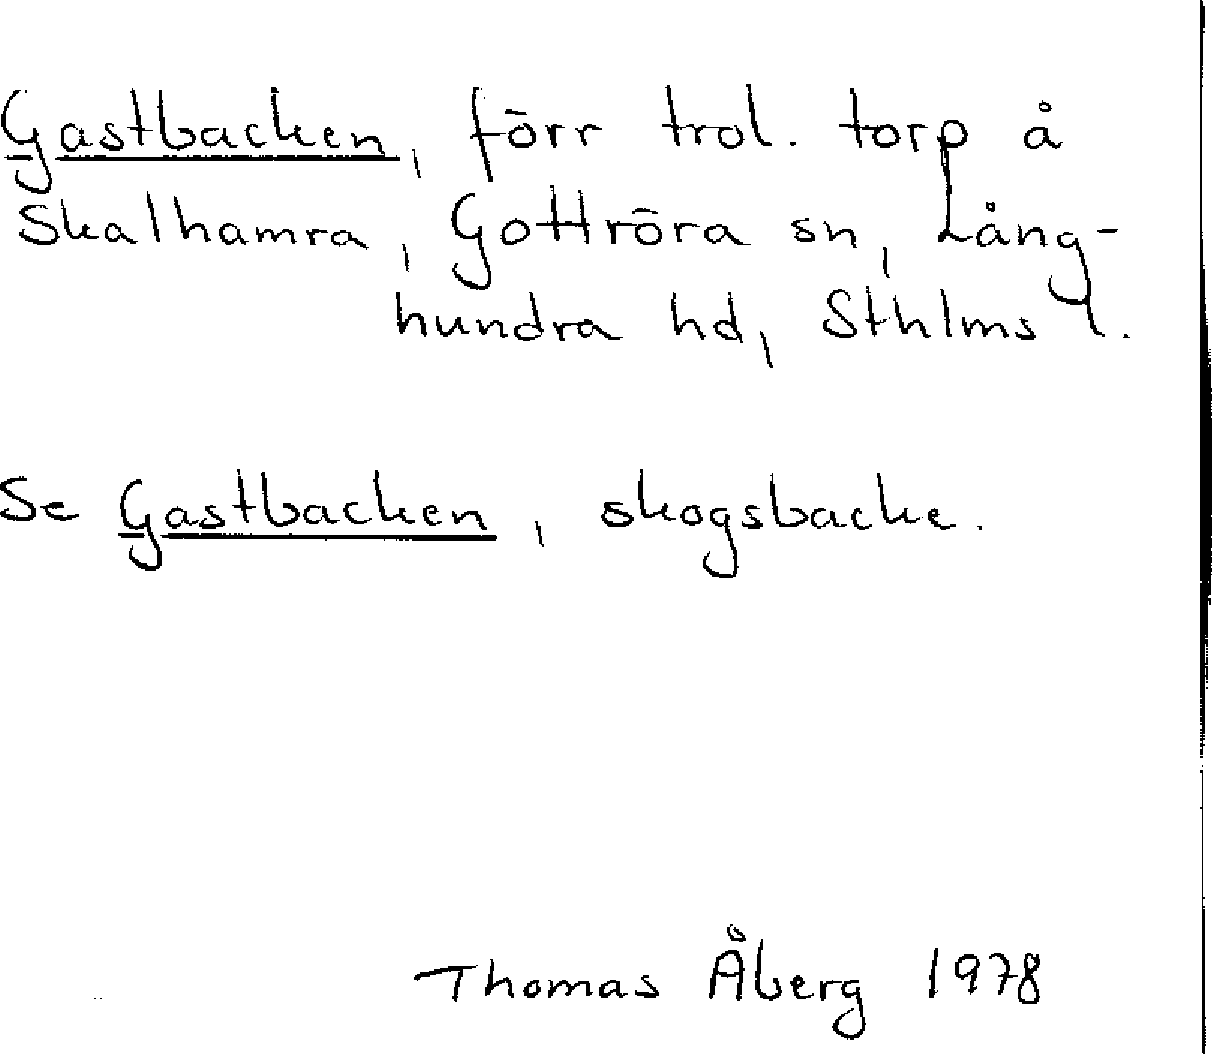 Gastbacken, förr trol. torp å
Skalhamra, Gottröra sn, Lång-
hundra hd, Sthlms l.
Se Gastbacken, skogsbacke.
Thomas Åberg 1978